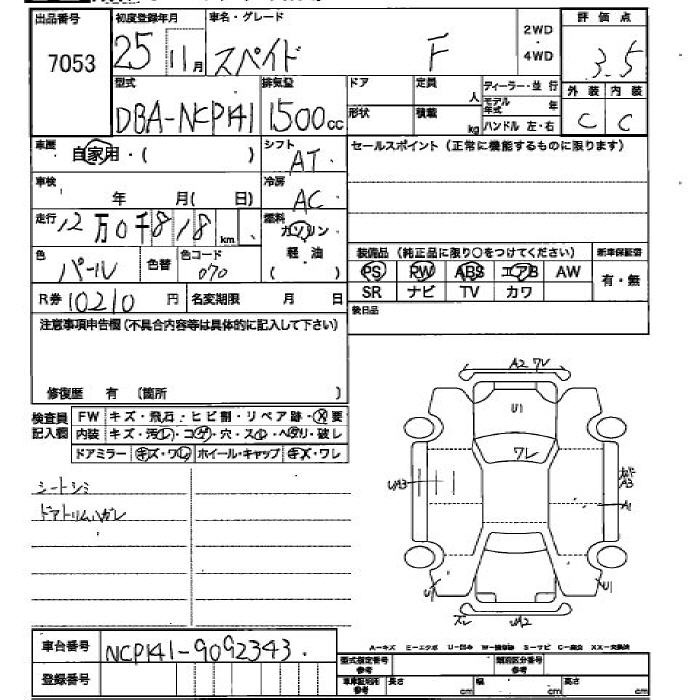 出品番号
7053
初度登録年月
25 11月
車名・グレード
スペイド F
2WD
・
4WD
評価点
3.5
外装 内装
C C
型式
DBA-NCP141
排気量
1500cc
ドア
定員
人
ディーラー・並行
モデル年式 年
ハンドル 左・右
形状
積載
kg
車歴
自家用・( )
シフト
AT
セールスポイント(正常に機能するものに限ります)
車検
年 月( 日)
冷房
AC
走行
12万0千818km
燃料
ガソリン
・
軽油
( )
色
パール
色替
色コード
070
装備品(純正品に限り○をつけてください)
新車保証書
PS PW ABS エアB AW
有・無
SR ナビ TV カワ
R券 10210円
名変期限 月 日
後日品
注意事項申告欄(不具合内容等は具体的に記入して下さい)
修復歴 有 (箇所 )
検査員
記入欄
FW キズ・飛石・ヒビ割・リペア跡・X要
内装 キズ・汚レ・コゲ・穴・スレ・ヘタリ・破レ
ドアミラー キズ・ワレ ホイール・キャップ キズ・ワレ
シートシミ
ドアトリムハガレ
A2 ワレ
U1
ワレ
UA3
A3
A1
U1
U1
ズレ
UA2
車台番号
NCP141-9092343
登録番号
A-キズ E-エクボ U-凹み W-補修跡 S-サビ C-腐食 XX-交換済
型式指定番号
参考
類別区分番号
参考
車庫証明用
参考
長さ cm
幅 cm
高さ cm